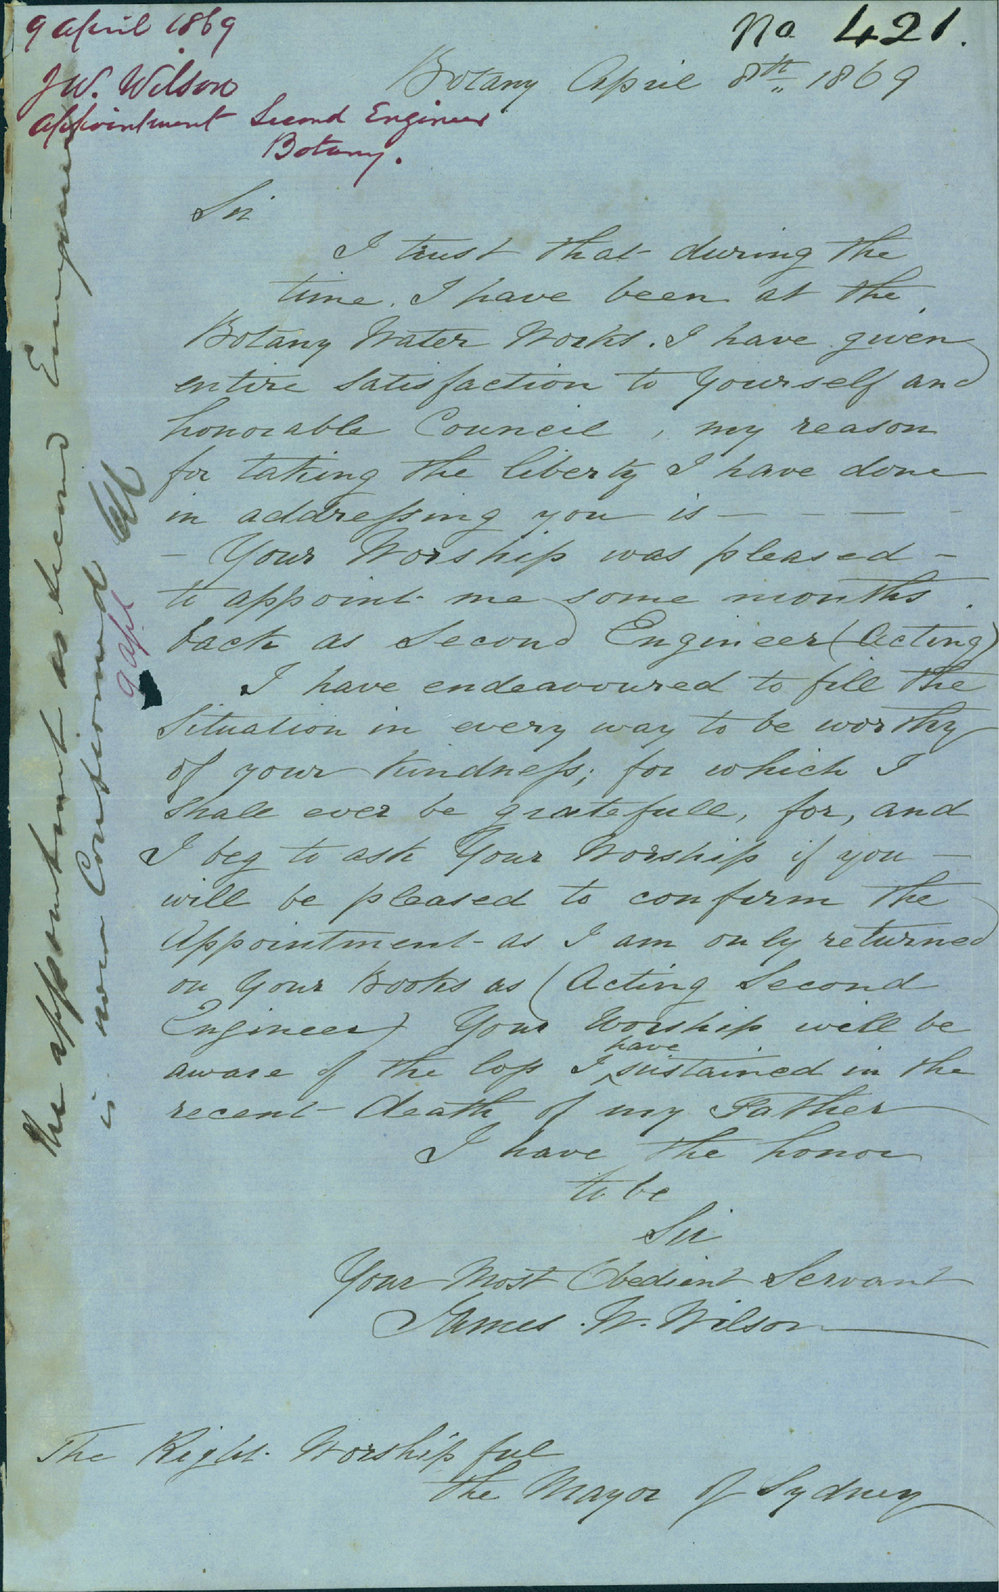 9 April 1869
No 421.
J W. Wilson
Appointment Second Engineer
Botany.
Botany April 8th 1869
Sir
I trust that during the
time. I have been at the
Botany Water Works. I have given
entire satisfaction to Yourself and
honorable Council, my reason
for taking the liberty I have done
in addressing you is - - - -
- Your Worship was pleased -
to appoint me some months
back as Second Engineer (Acting)
I have endeavoured to fill the
Situation in every way to be worthy
of your kindness; for which I
shall ever be gratefull, for, and
I beg to ask Your Worship if you -
will be pleased to confirm the
Appointment - as I am only returned
on Your Books as (Acting Second
Engineer) Your Worship will be
aware of the loss I have sustained in the
recent death of my Father
I have the honor
to be
Sir
Your Most Obedient Servant
James. W. Wilson
The Right Worshipful
the Mayor of Sydney
The appointment as Second Engineer
is now Confirmed
9 Apl